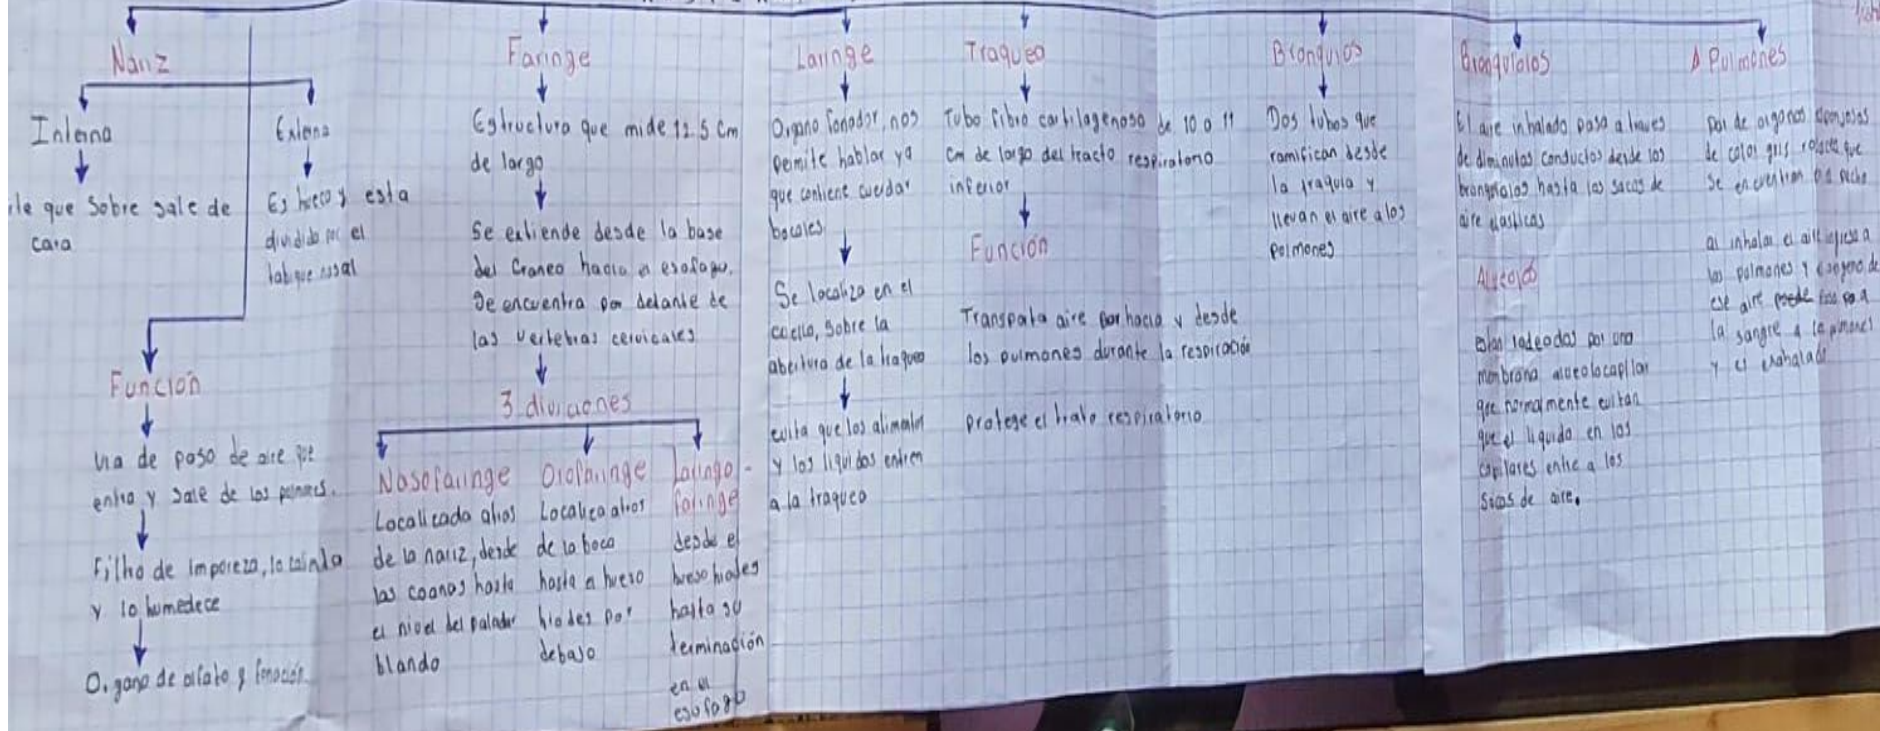 Nariz
Interna
Externa
le que Sobre sale de
cara
Es hueco y esta
dividido por el
tabique nasal
Función
via de paso de aire que
entra y sale de los
Filtro de impureza, lo
y lo humedece
Organo de olfato y fonación.
Faringe
Estructura que mide 12.5 cm
de largo
Se extiende desde la base
del Craneo hacia el esofago.
Se encuentra por delante de
las vertebras cervicales
3 diviciones
Nasofaringe
Localizada atras
de la nariz, desde
las coanas hasta
el nivel del paladar
blando
Orofaringe
Localiza atras
de la boca
hasta el hueso
hiodes por
debajo
Laringo-
faringe
desde el
hueso hiodes
hasta su
terminación
en el
esofago
Laringe
Organo fonador, nos
permite hablar ya
que contiene cuerdas
bocales
Se localiza en el
cuello, sobre la
abertura de la traquea
evita que los alimentos
y los liquidos entren
a la traquea
Traquea
Tubo fibro cartilagenoso de 10 o 11
cm de largo del tracto respiratorio
inferior
Función
Transporta aire por hacia y desde
los pulmones durante la respiración
protege el trato respiratorio
Bronquios
Dos tubos que
ramifican desde
la traquia y
llevan el aire a los
polmones
Bronquiolos
El aire inhalado pasa a traves
de diminutos conductos desde los
bronquiolos hasta los sacos de
aire elasticas
estan rodeados por una
membrana alveolocapilar
que normalmente evitan
que el liquido en los
capilares entre a los
sacos de aire.
Pulmones
par de organos esponjosos
de color gris que
se encuentran
al inhalar el aire ingresa a
los pulmones y de
ese aire pasa a
la sangre
y es exahalado